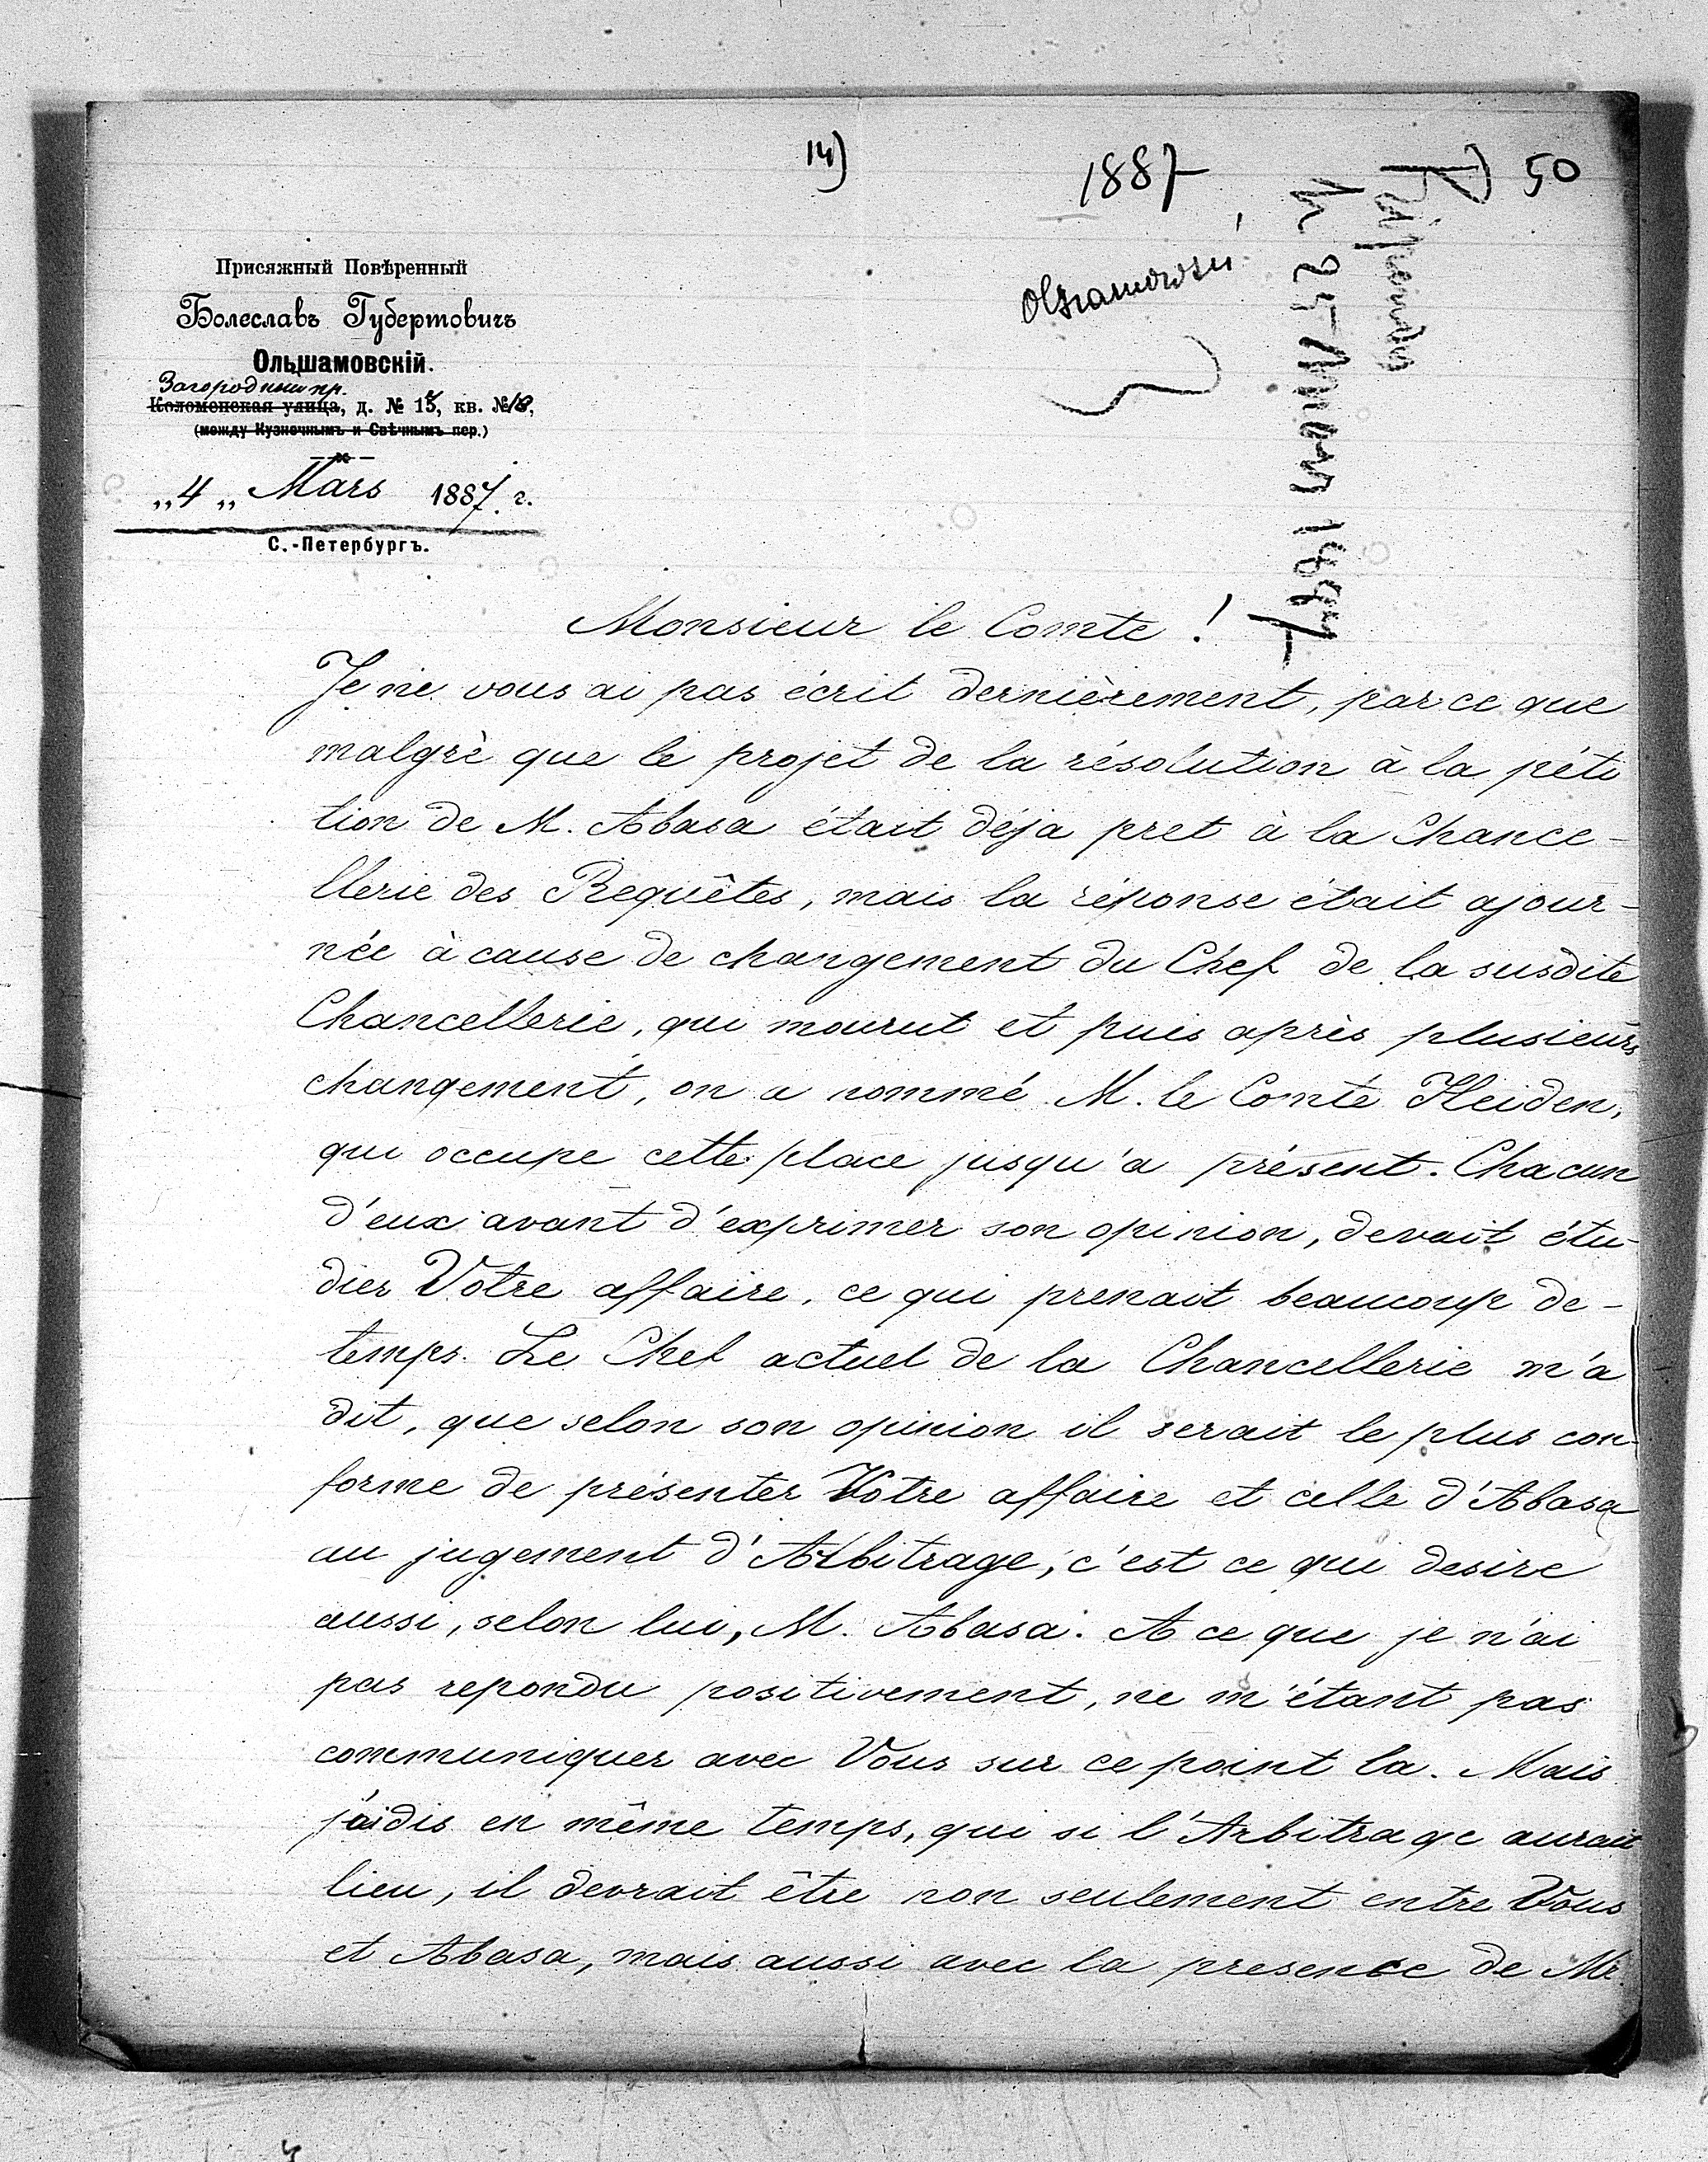 14)
1887
50
Olszamowski
Répondu
le 25 Mars 1887
Присяжный Повѣренный
Болеславъ Губертовичъ
Ольшамовскій.
Загородный пр.
Коломенская улица, д. № 15, кв. № 18,
(между Кузнечнымъ и Свѣчнымъ пер.)
„4„ Mars 1887 г.
С.-Петербургъ.
Monsieur le Comte !
Je ne vous ai pas écrit dernièrement, par ce que
malgrè que le projet de la résolution à la péti
tion de M. Abasa était déja pret à la Chance-
llerie des Requêtes, mais la réponse était ajour-
née à cause de changement du Chef de la susdite
Chancellerie, qui mourut et puis après plusieurs
changement, on a nommé M. le Comte Heiden,
qui occupe cette place jusqu'a présent. Chacun
d'eux avant d'exprimer son opinion, devait étu-
dier Votre affaire, ce qui prenait beaucoup de-
temps. Le Chef actuel de la Chancellerie m'a
dit, que selon son opinion il serait le plus con-
forme de présenter Votre affaire et celle d'Abasa
au jugement d'Arbitrage, c'est ce qui desire
aussi, selon lui, M. Abasa. A ce que je n'ai
pas repondu positivement, ne m'étant pas
communiquer avec Vous sur ce point la. Mais
j'aidis en même temps, qui si l'Arbitrage aurait
lieu, il devrait être non seulement entre Vous
et Abasa, mais aussi avec la presence de Mr.